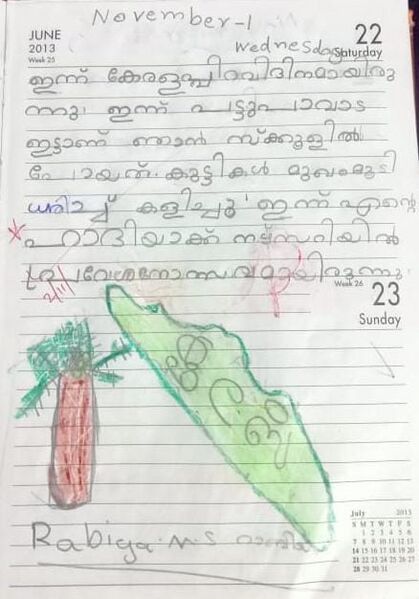 November-1
JUNE
2013
Week 25
22
Saturday
wednesday
ഇന്ന് കേരളപ്പിറവിദിനമായിരു
ന്നു. ഇന്ന് പട്ടുപാവാട
ഇട്ടാണ് ഞാൻ സ്ക്കൂളിൽ
പോയത്. കുട്ടികൾ മുഖംമൂടി
ധരിച്ച് കളിച്ചു. ഇന്ന് എന്റെ
ഹാദിയാക്ക് നഴ്സറിയിൽ
പ്രവേശനോത്സവമായിരുന്നു.
2/11/
Week 26
23
Sunday
കേരളം
July 2013
S M T W T F S
1 2 3 4 5 6
7 8 9 10 11 12 13
14 15 16 17 18 19 20
21 22 23 24 25 26 27
28 29 30 31
Rabiya.M.S റാബിയ